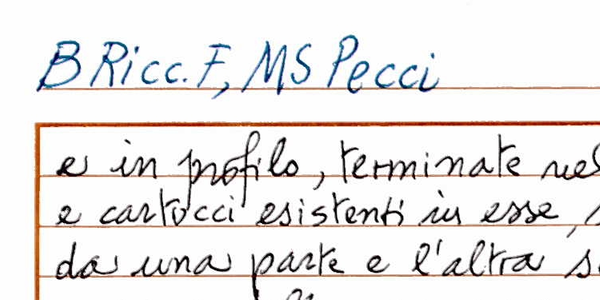 B Ricc. F, MS Pecci
e in profilo, terminate nel
e cartocci esistenti in esse,
da una parte e l'altra s